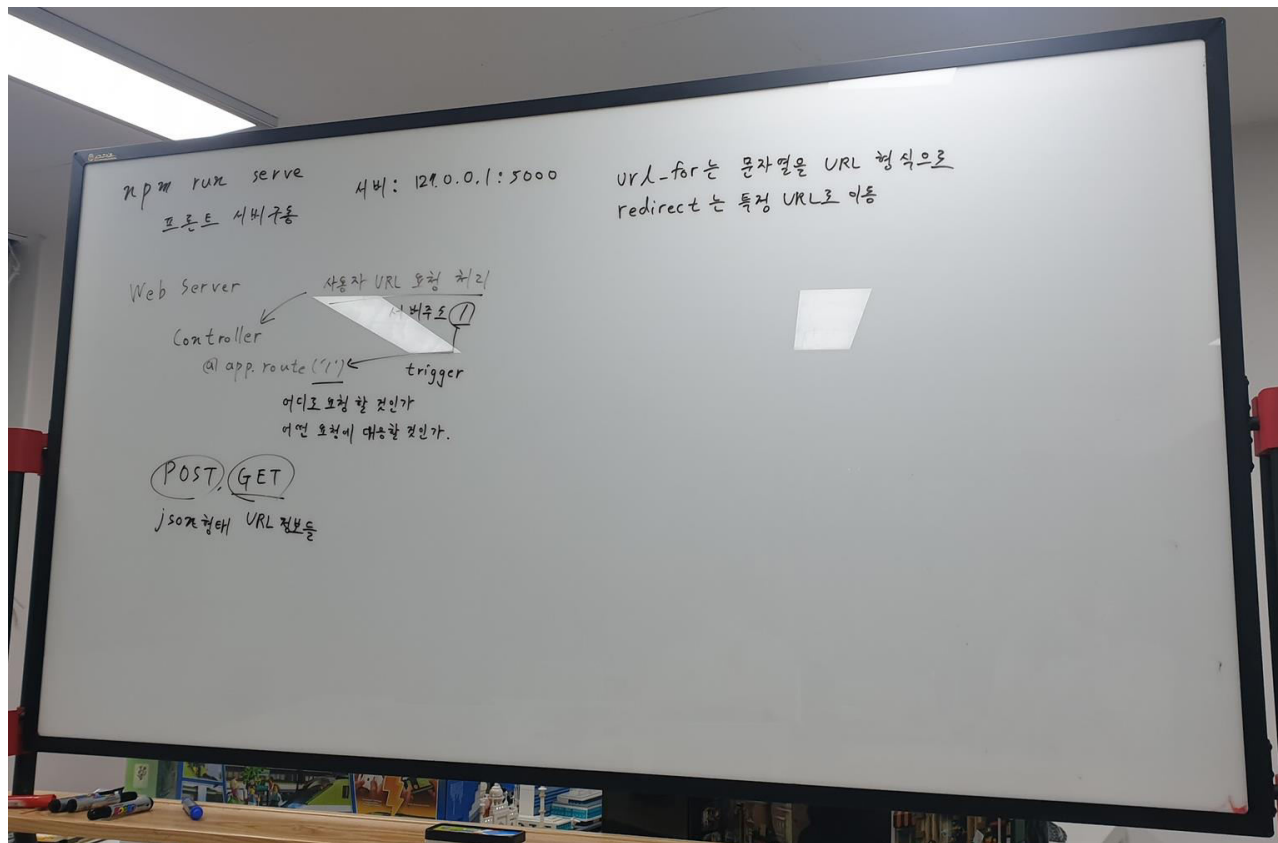 npm run serve
프론트 서버구동
서버: 127.0.0.1:5000
url_for는 문자열을 URL 형식으로
redirect는 특정 URL로 이동
Web Server
사용자 URL 요청 처리
서버주소 /
Controller
@app.route('/')
trigger
어디로 요청 할 것인가
어떤 요청에 대응할 것인가.
POST, GET
json형태 URL 정보들